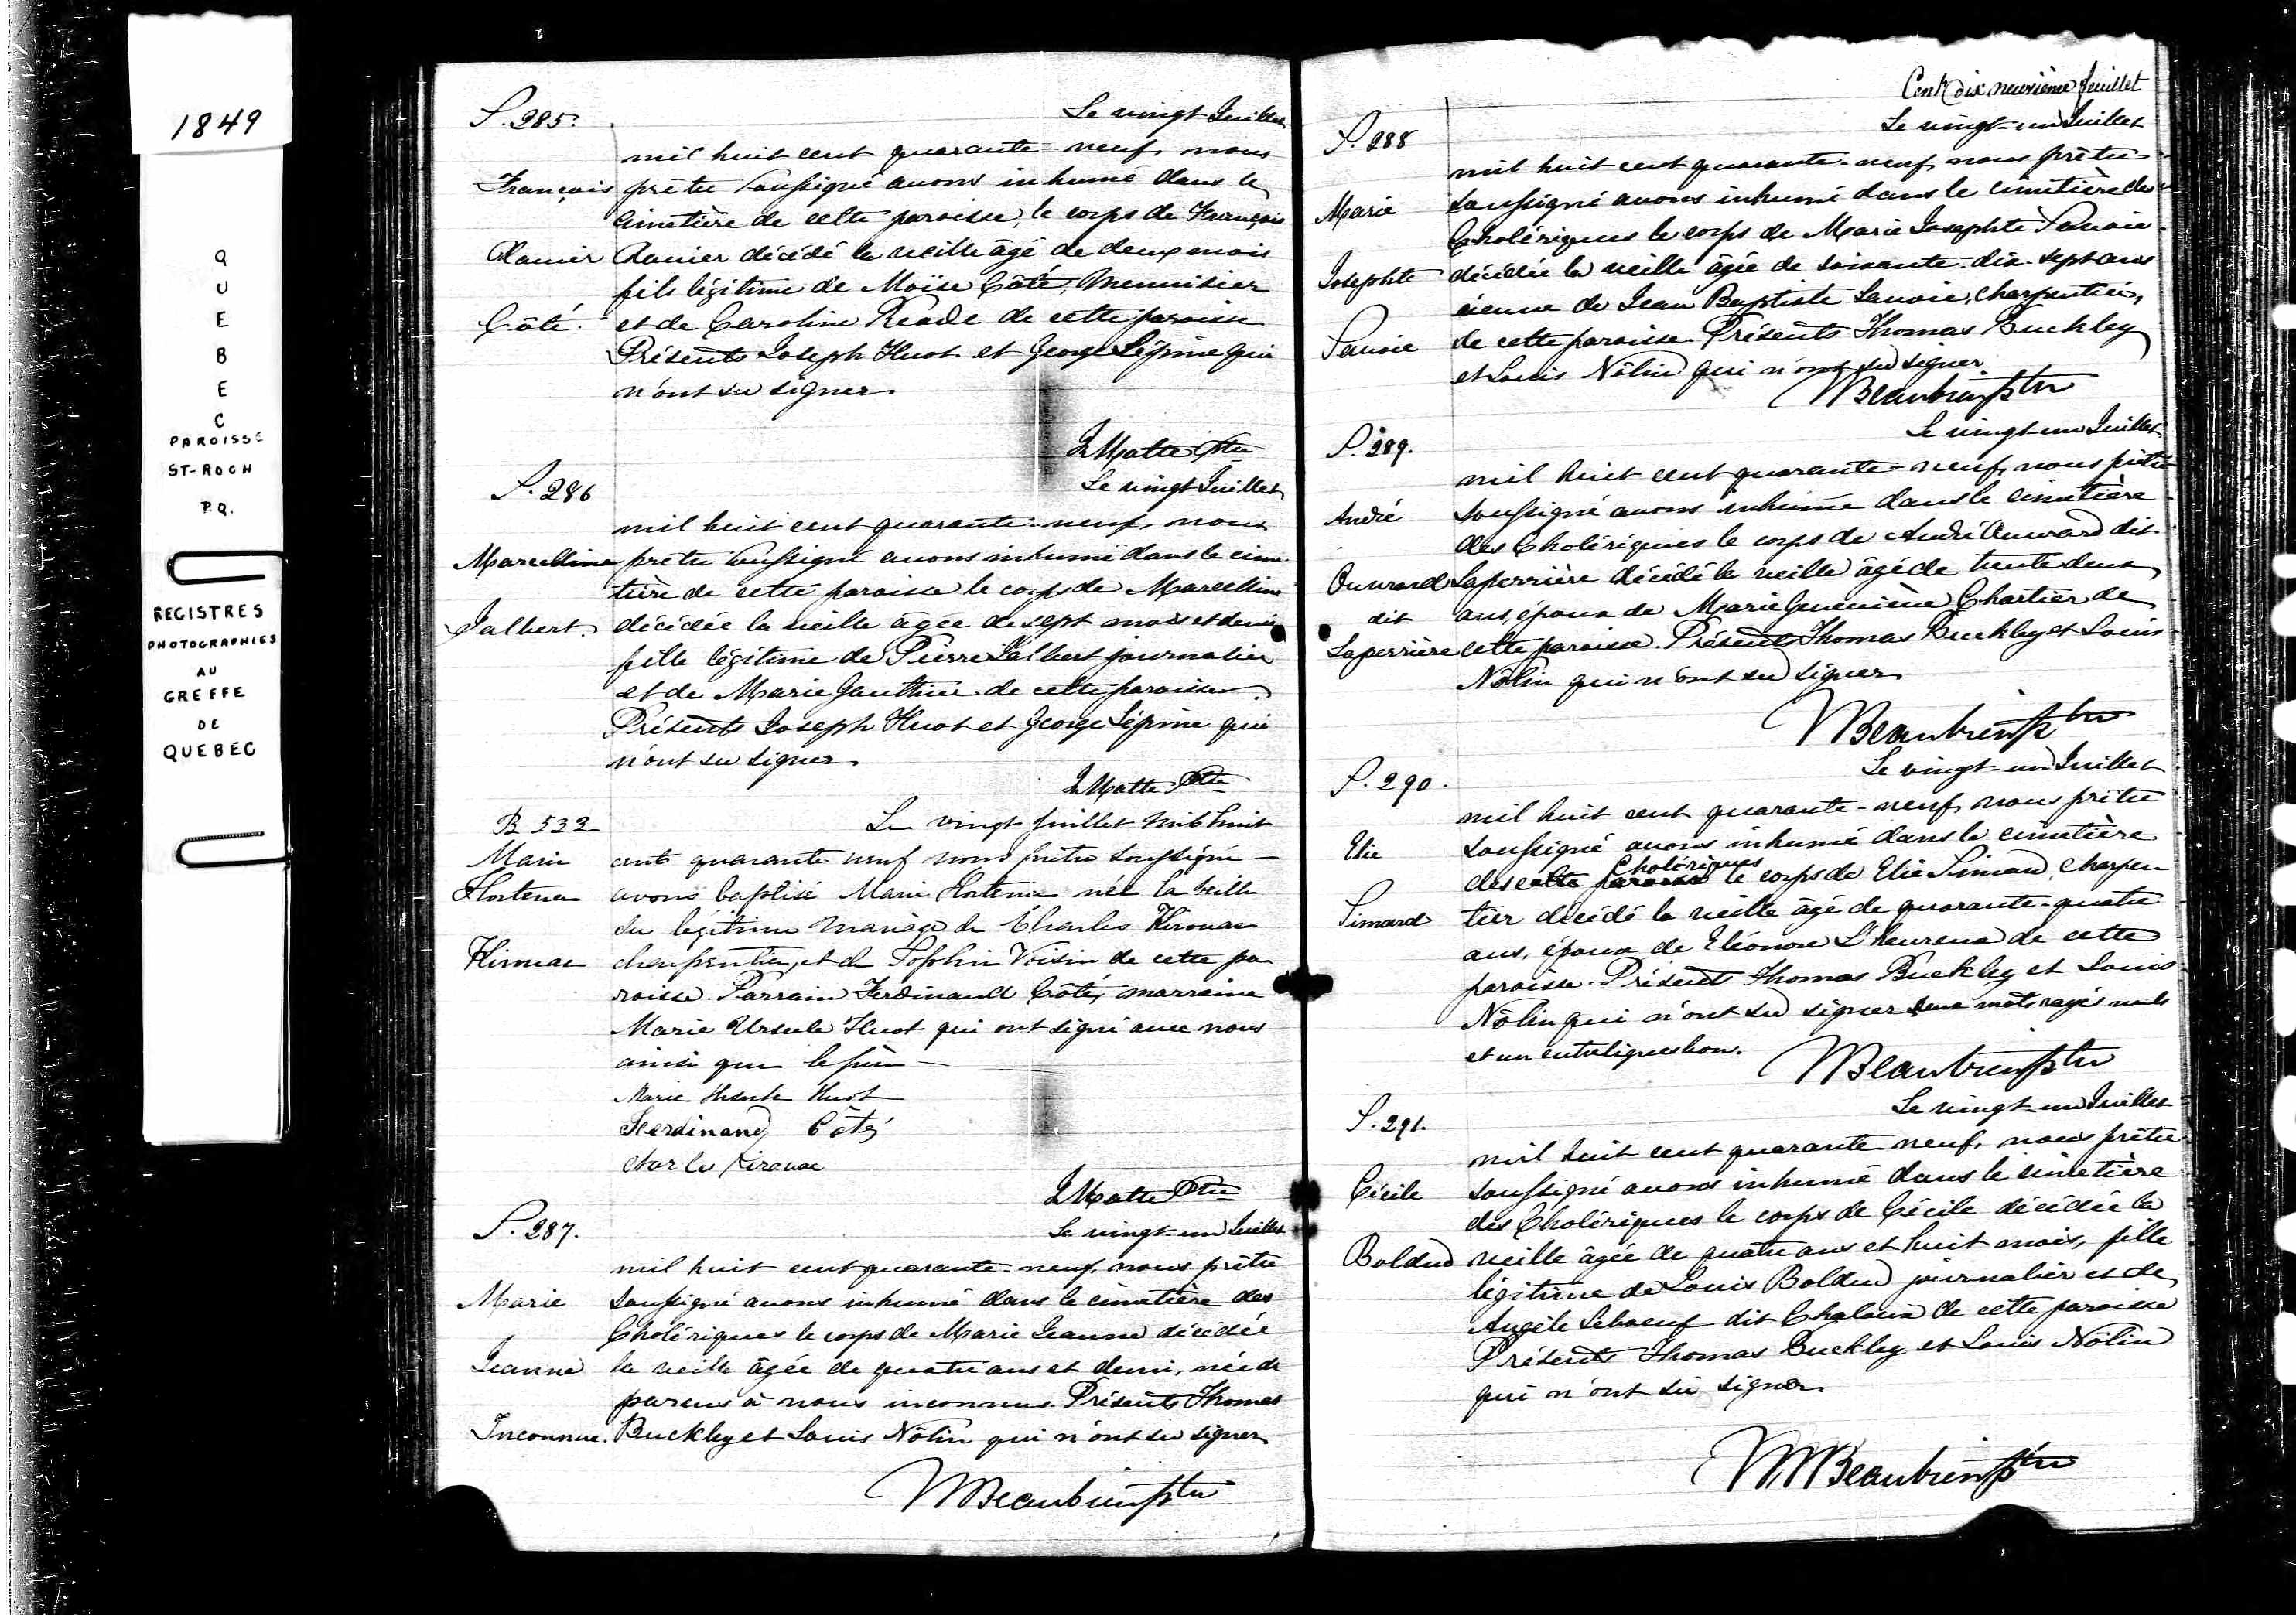 1849
QUEBEC
PAROISSE
ST-ROCH
P.Q.
REGISTRES
PHOTOGRAPHIES
AU
GREFFE
DE
QUEBEC
S. 285.
Le vingt Juillet
mil huit cent quarante-neuf, nous
François prêtre soussigné avons inhumé dans le
cimetière de cette paroisse, le corps de François
décédé la veille âgé de deux mois
fils légitime de Moïse Côté, Menuisier
Côté. et de Caroline Reade de cette paroisse
Présents Joseph Huot et George Lépine qui
n'ont su signer.
Matte Ptre
S. 286
Le vingt Juillet
mil huit cent quarante-neuf, nous
Marcelline prêtre soussigné avons inhumé dans le cime
tière de cette paroisse le corps de Marcelline
Jalbert. décédée la veille âgée de sept mois et demi
fille légitime de Pierre Jalbert journalier
et de Marie Gauthier de cette paroisse.
Présents Joseph Huot et George Lépine qui
n'ont su signer.
Matte Ptre
B 532
Le vingt juillet mil huit
Marie cent quarante neuf nous prêtre soussigné
Hortense avons baptisé Marie Hortense née la veille
du légitime mariage de Charles Kirouac
Kirouac charpentier, et de Voisin de cette pa
roisse. Parrain Ferdinand Côté, marraine
Marie Ursule Huot qui ont signé avec nous
ainsi que le père
Marie Ursule Huot
Ferdinand Côté
Charles Kirouac
Matte Ptre
S. 287.
Le vingt-un Juillet
mil huit cent quarante-neuf, nous prêtre
Marie soussigné avons inhumé dans le cimetière des
Cholériques le corps de Marie Jeanne décédée
Jeanne la veille âgée de quatre ans et demi, née de
parens à nous inconnus. Présents Thomas
Inconnue. Buckley et Louis Nôlin qui n'ont su signer
Beaubien Ptre
Cent dix neuvième feuillet
S. 288
Le vingt-un Juillet
mil huit cent quarante-neuf, nous prêtre
Marie soussigné avons inhumé dans le cimetière des
Cholériques le corps de Marie Josephte Savoie
Josephte décédée la veille âgée de soixante-dix-sept ans
veuve de Jean Baptiste Lavoie, Charpentier,
Savoie de cette paroisse. Présents Thomas Buckley
et Louis Nôlin qui n'ont su signer.
Beaubien Ptre
S. 289.
Le vingt-un Juillet
mil huit cent quarante-neuf, nous prêtre
André soussigné avons inhumé dans le cimetière
des Cholériques le corps de André Ouvrard dit
Ouvrard Laperrière décédé la veille âgé de trente deux
dit ans, époux de Marie Geneviève Chartier de
Laperrière cette paroisse. Présents Thomas Buckley et Louis
Nôlin qui n'ont su signer
Beaubien Ptre
S. 290.
Le vingt-un Juillet
mil huit cent quarante-neuf, nous prêtre
Elie soussigné avons inhumé dans le cimetière
Cholériques
des cette paroisse le corps de Elie Simard, Charpen
Simard tier décédé la veille âgé de quarante-quatre
ans, époux de Eléonore L'heureux de cette
paroisse. Présents Thomas Buckley et Louis
Nôlin qui n'ont su signer deux mots rayés nuls
et un entreligne bon.
Beaubien Ptre
S. 291.
Le vingt-un Juillet
mil huit cent quarante neuf, nous prêtre
Cécile soussigné avons inhumé dans le cimetière
des Cholériques le corps de Cécile décédée la
Bolduc veille âgée de quatre ans et huit mois, fille
légitime de Louis Bolduc journalier et de
Angèle Leboeuf dit Chaloux de cette paroisse
Présents Thomas Buckley et Louis Nôlin
qui n'ont su signer.
Beaubien Ptre